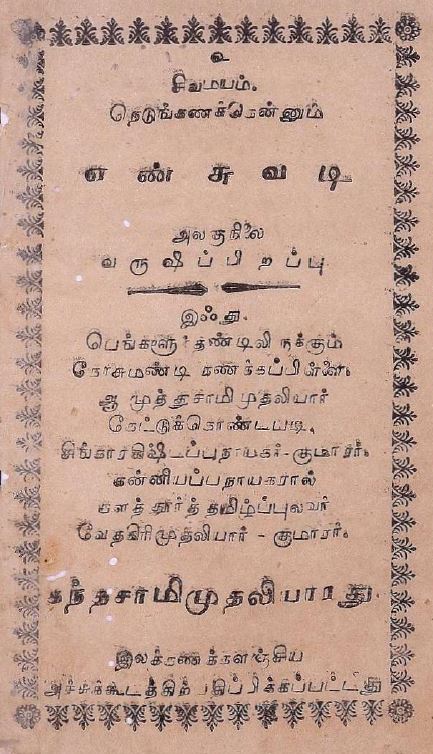 உ
சிவமயம்.
நெடுங்கணக்கென்னும்
எண் சுவடி
அலகுநிலை
வருஷப்பிறப்பு
இஃது.
பெங்களூர் தண்டிலிருக்கும்
கணக்கப்பிள்ளை.
ஆ முத்துசாமி முதலியார்
கேட்டுக்கொண்டபடி,
சிங்காரகிஷ்டப்புநாயகர் - குமாரர்.
கன்னியப்பநாயகரால்
களத்தூர்த் தமிழ்ப்புலவர்
வேதகிரிமுதலியார் - குமாரர்.
கந்தசாமிமுதலியாரது.
இலக்கணக்களஞ்சிய
அச்சுக்கூடத்திற் பதிப்பிக்கப்பட்டது